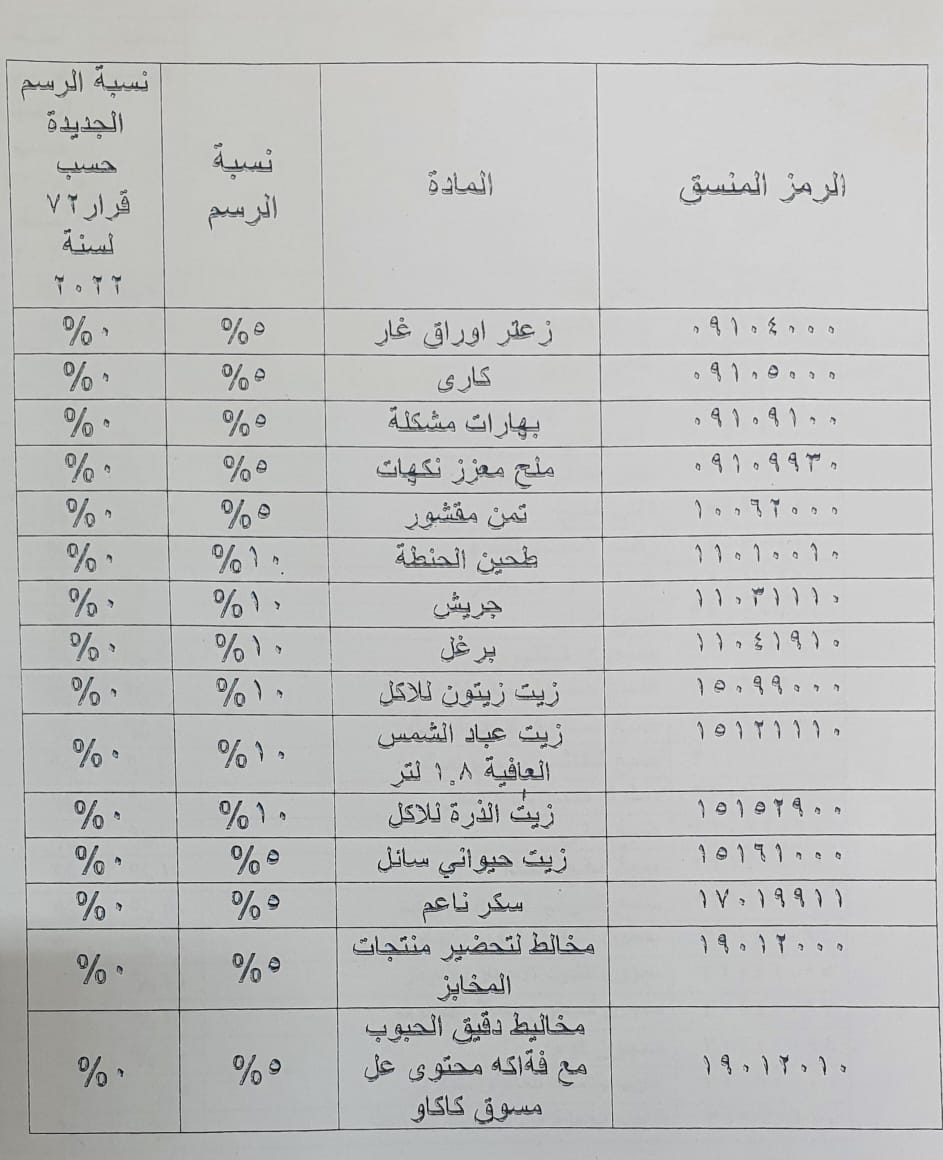 الرمز المنسق	المادة	نسبة الرسم	نسبة الرسم الجديدة حسب قرار ٧٢ لسنة ٢٠٢٢
٠٩١٠٤٠٠٠	زعتر اوراق غار	%٥	%٠
٠٩١٠٥٠٠٠	كارى	%٥	%٠
٠٩١٠٩١٠٠	بهارات مشكلة	%٥	%٠
٠٩١٠٩٩٣٠	ملح معزز نكهات	%٥	%٠
١٠٠٦٢٠٠٠	تمن مقشور	%٥	%٠
١١٠١٠٠١٠	طحين الحنطة	%١٠	%٠
١١٠٣١١١٠	جريش	%١٠	%٠
١١٠٤١٩١٠	برغل	%١٠	%٠
١٥٠٩٩٠٠٠	زيت زيتون للاكل	%١٠	%٠
١٥١٢١١١٠	زيت عباد الشمس العافية ١.٨ لتر	%١٠	%٠
١٥١٥٢٩٠٠	زيت الذرة للاكل	%١٠	%٠
١٥١٦١٠٠٠	زيت حيواني سائل	%٥	%٠
١٧٠١٩٩١١	سكر ناعم	%٥	%٠
١٩٠١٢٠٠٠	مخالط لتحضير منتجات المخابز	%٥	%٠
١٩٠١٢٠١٠	مخاليط دقيق الحبوب مع فةاكه محتوى عل مسوق كاكاو	%٥	%٠